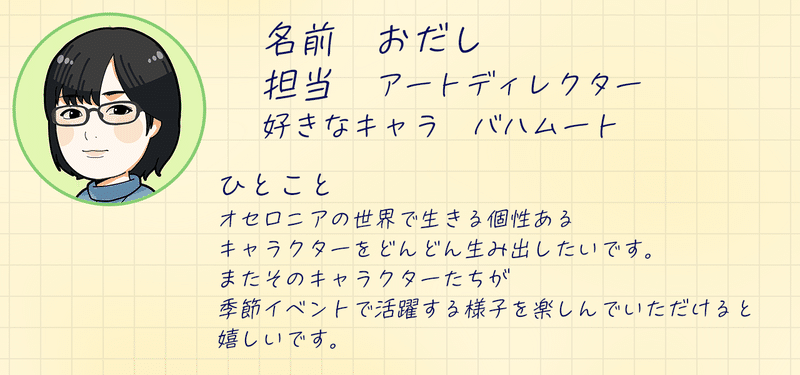 名前　おだし
担当　アートディレクター
好きなキャラ　バハムート
ひとこと
オセロニアの世界で生きる個性ある
キャラクターをどんどん生み出したいです。
またそのキャラクターたちが
季節イベントで活躍する様子を楽しんでいただけると
嬉しいです。